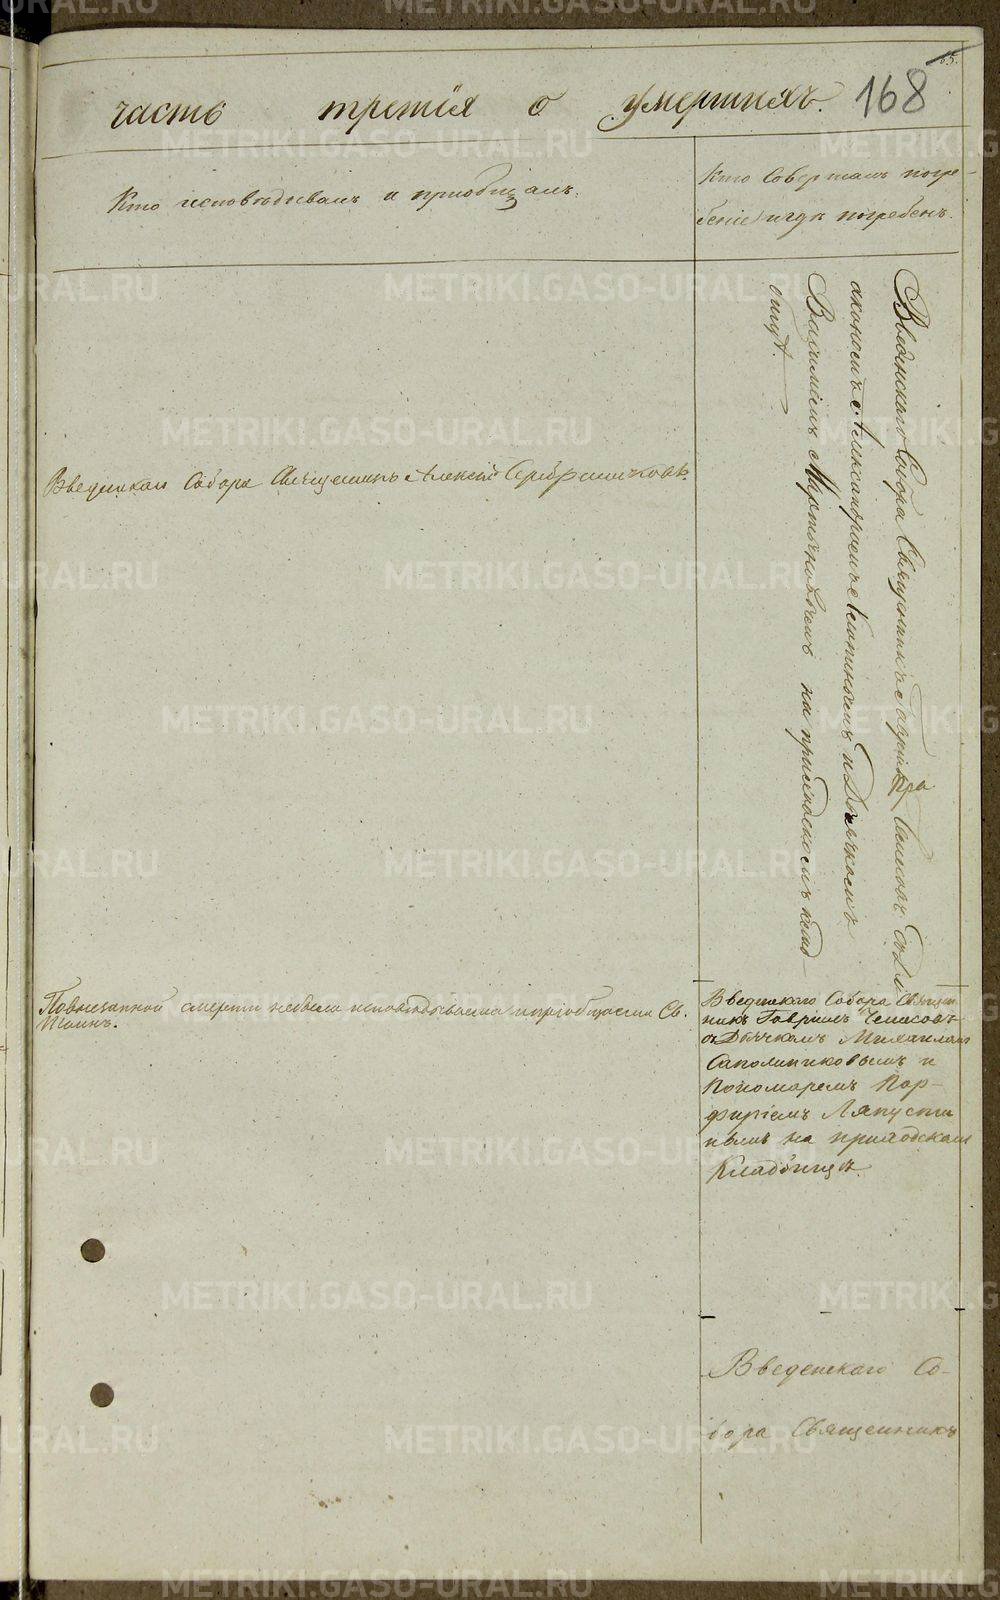 168
часть третія о умершихъ.
Кто исповѣдывалъ и пріобщалъ.
Кто Совершалъ погре-
беніе и гдѣ погребенъ.
Введенскаго Собора Священникъ Алексій Серебрениковъ.
Введенскаго Собора Священникъ Гавріилъ
Александромъ и Дьячкомъ
на приходскомъ клад-
бищѣ.
смерти небыла исповѣдывана и пріобщаема Св.
Таинъ.
Введенскаго Собора Священ-
никъ Гавріилъ
съ Дьячкомъ Михаиломъ
Сапожниковымъ и
Пономаремъ Пор-
фиріемъ Ляпусти
нымъ на приходскомъ
Кладбищѣ.
Введенскаго Со-
бора Священникъ
METRIKI.GASO-URAL.RU